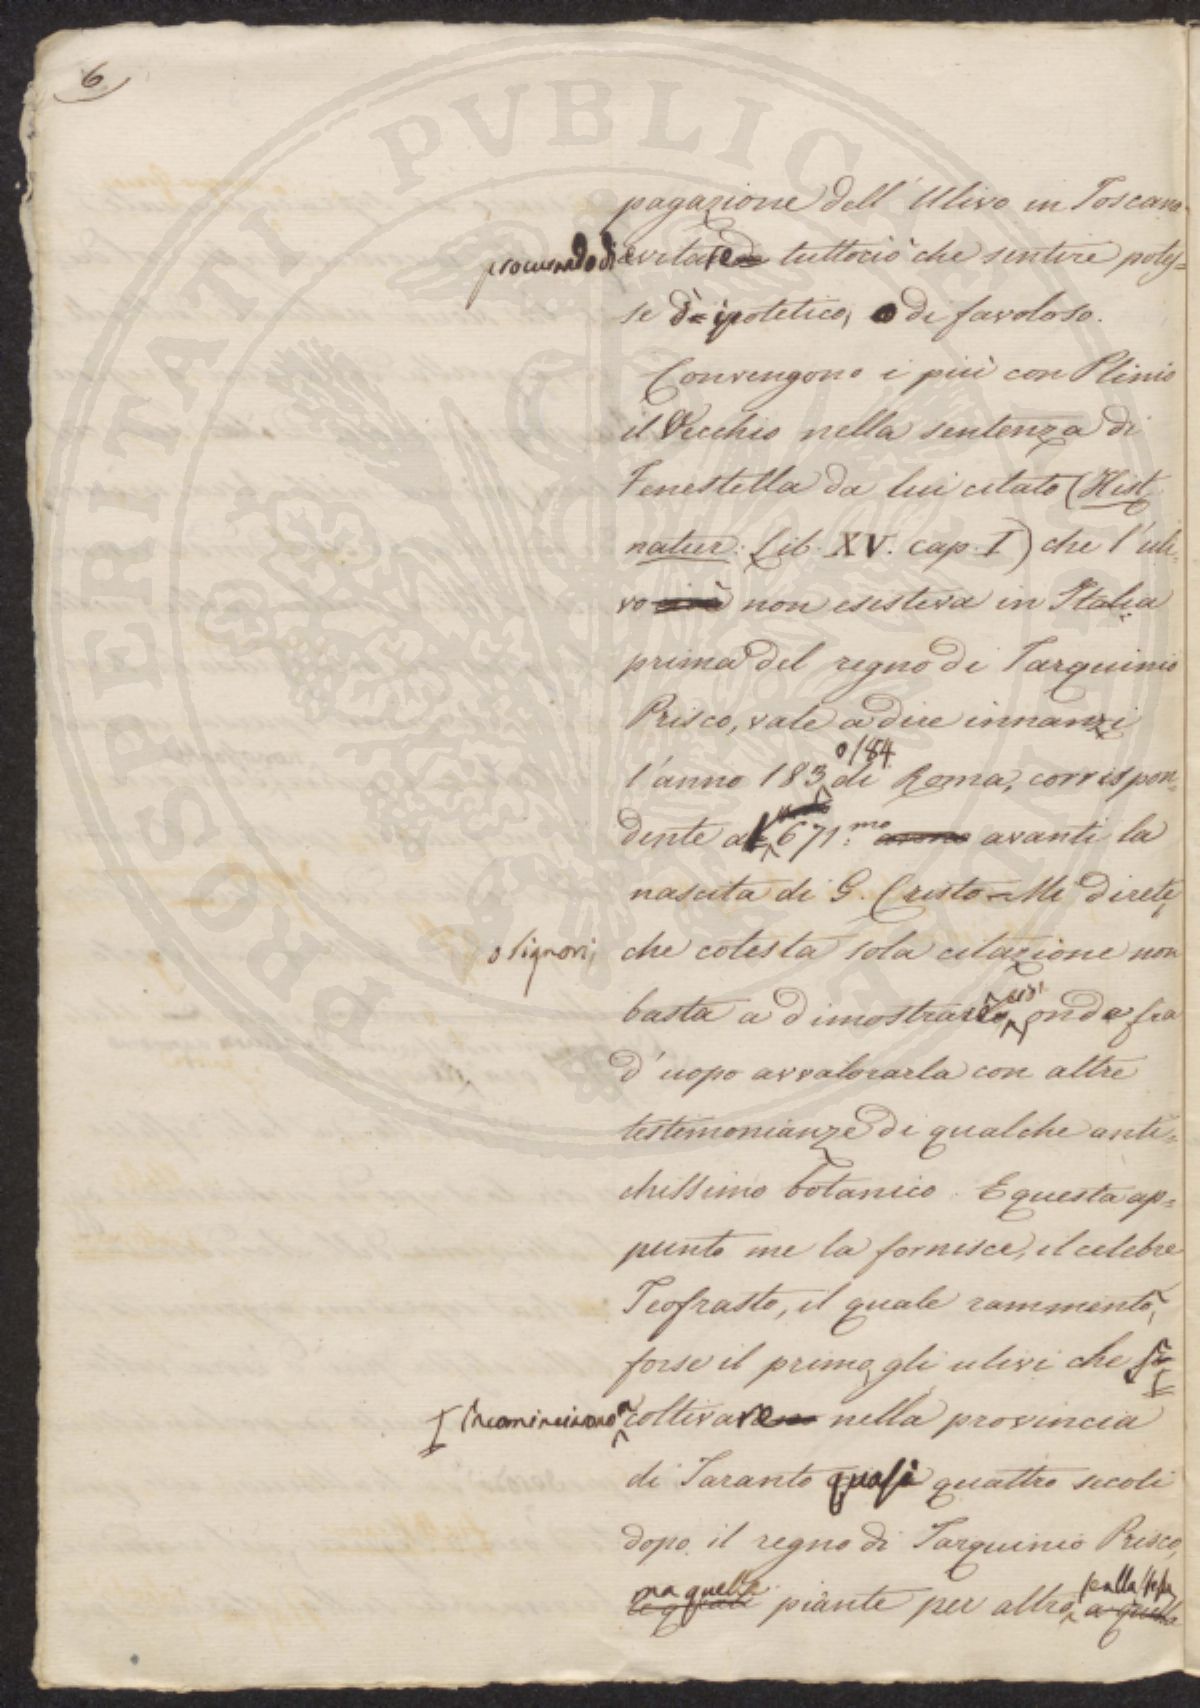 6
pagazione dell' Ulivo in Toscana
procurando di evitare tuttociò che sentire potes=
se d'ipotetico, o di favoloso.
Convengono i più con Plinio
il Vecchio nella sentenza di
Fenestella da lui citato (Hist.
natur: Lib. XV. cap. I) che l'uli=
vo non esisteva in Italia
prima del regno di Tarquinio
Prisco, vale a dire innanzi
o 184
l'anno 183 di Roma, corrispon=
dente al 671.mo anno avanti la
nascita di G. Cristo = Mi direte,
o Signori, che cotesta sola citazione non
basta a dimostrarlo, onde fia
d'uopo avvalorarla con altre
testimonianze di qualche anti=
chissimo botanico. E questa ap=
punto me la fornisce, il celebre
Teofrasto, il quale rammentò,
forse il primo, gli ulivi che si
incominciarono a coltivare nella provincia
di Taranto quasi quattro secoli
dopo il regno di Tarquinio Prisco,
ma quelle sulla stessa
le quali piante per altro a quella